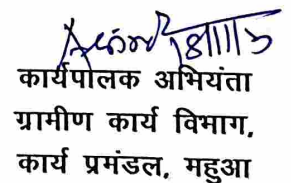 कार्यपालक अभियंता
ग्रामीण कार्य विभाग,
कार्य प्रमंडल, महुआ